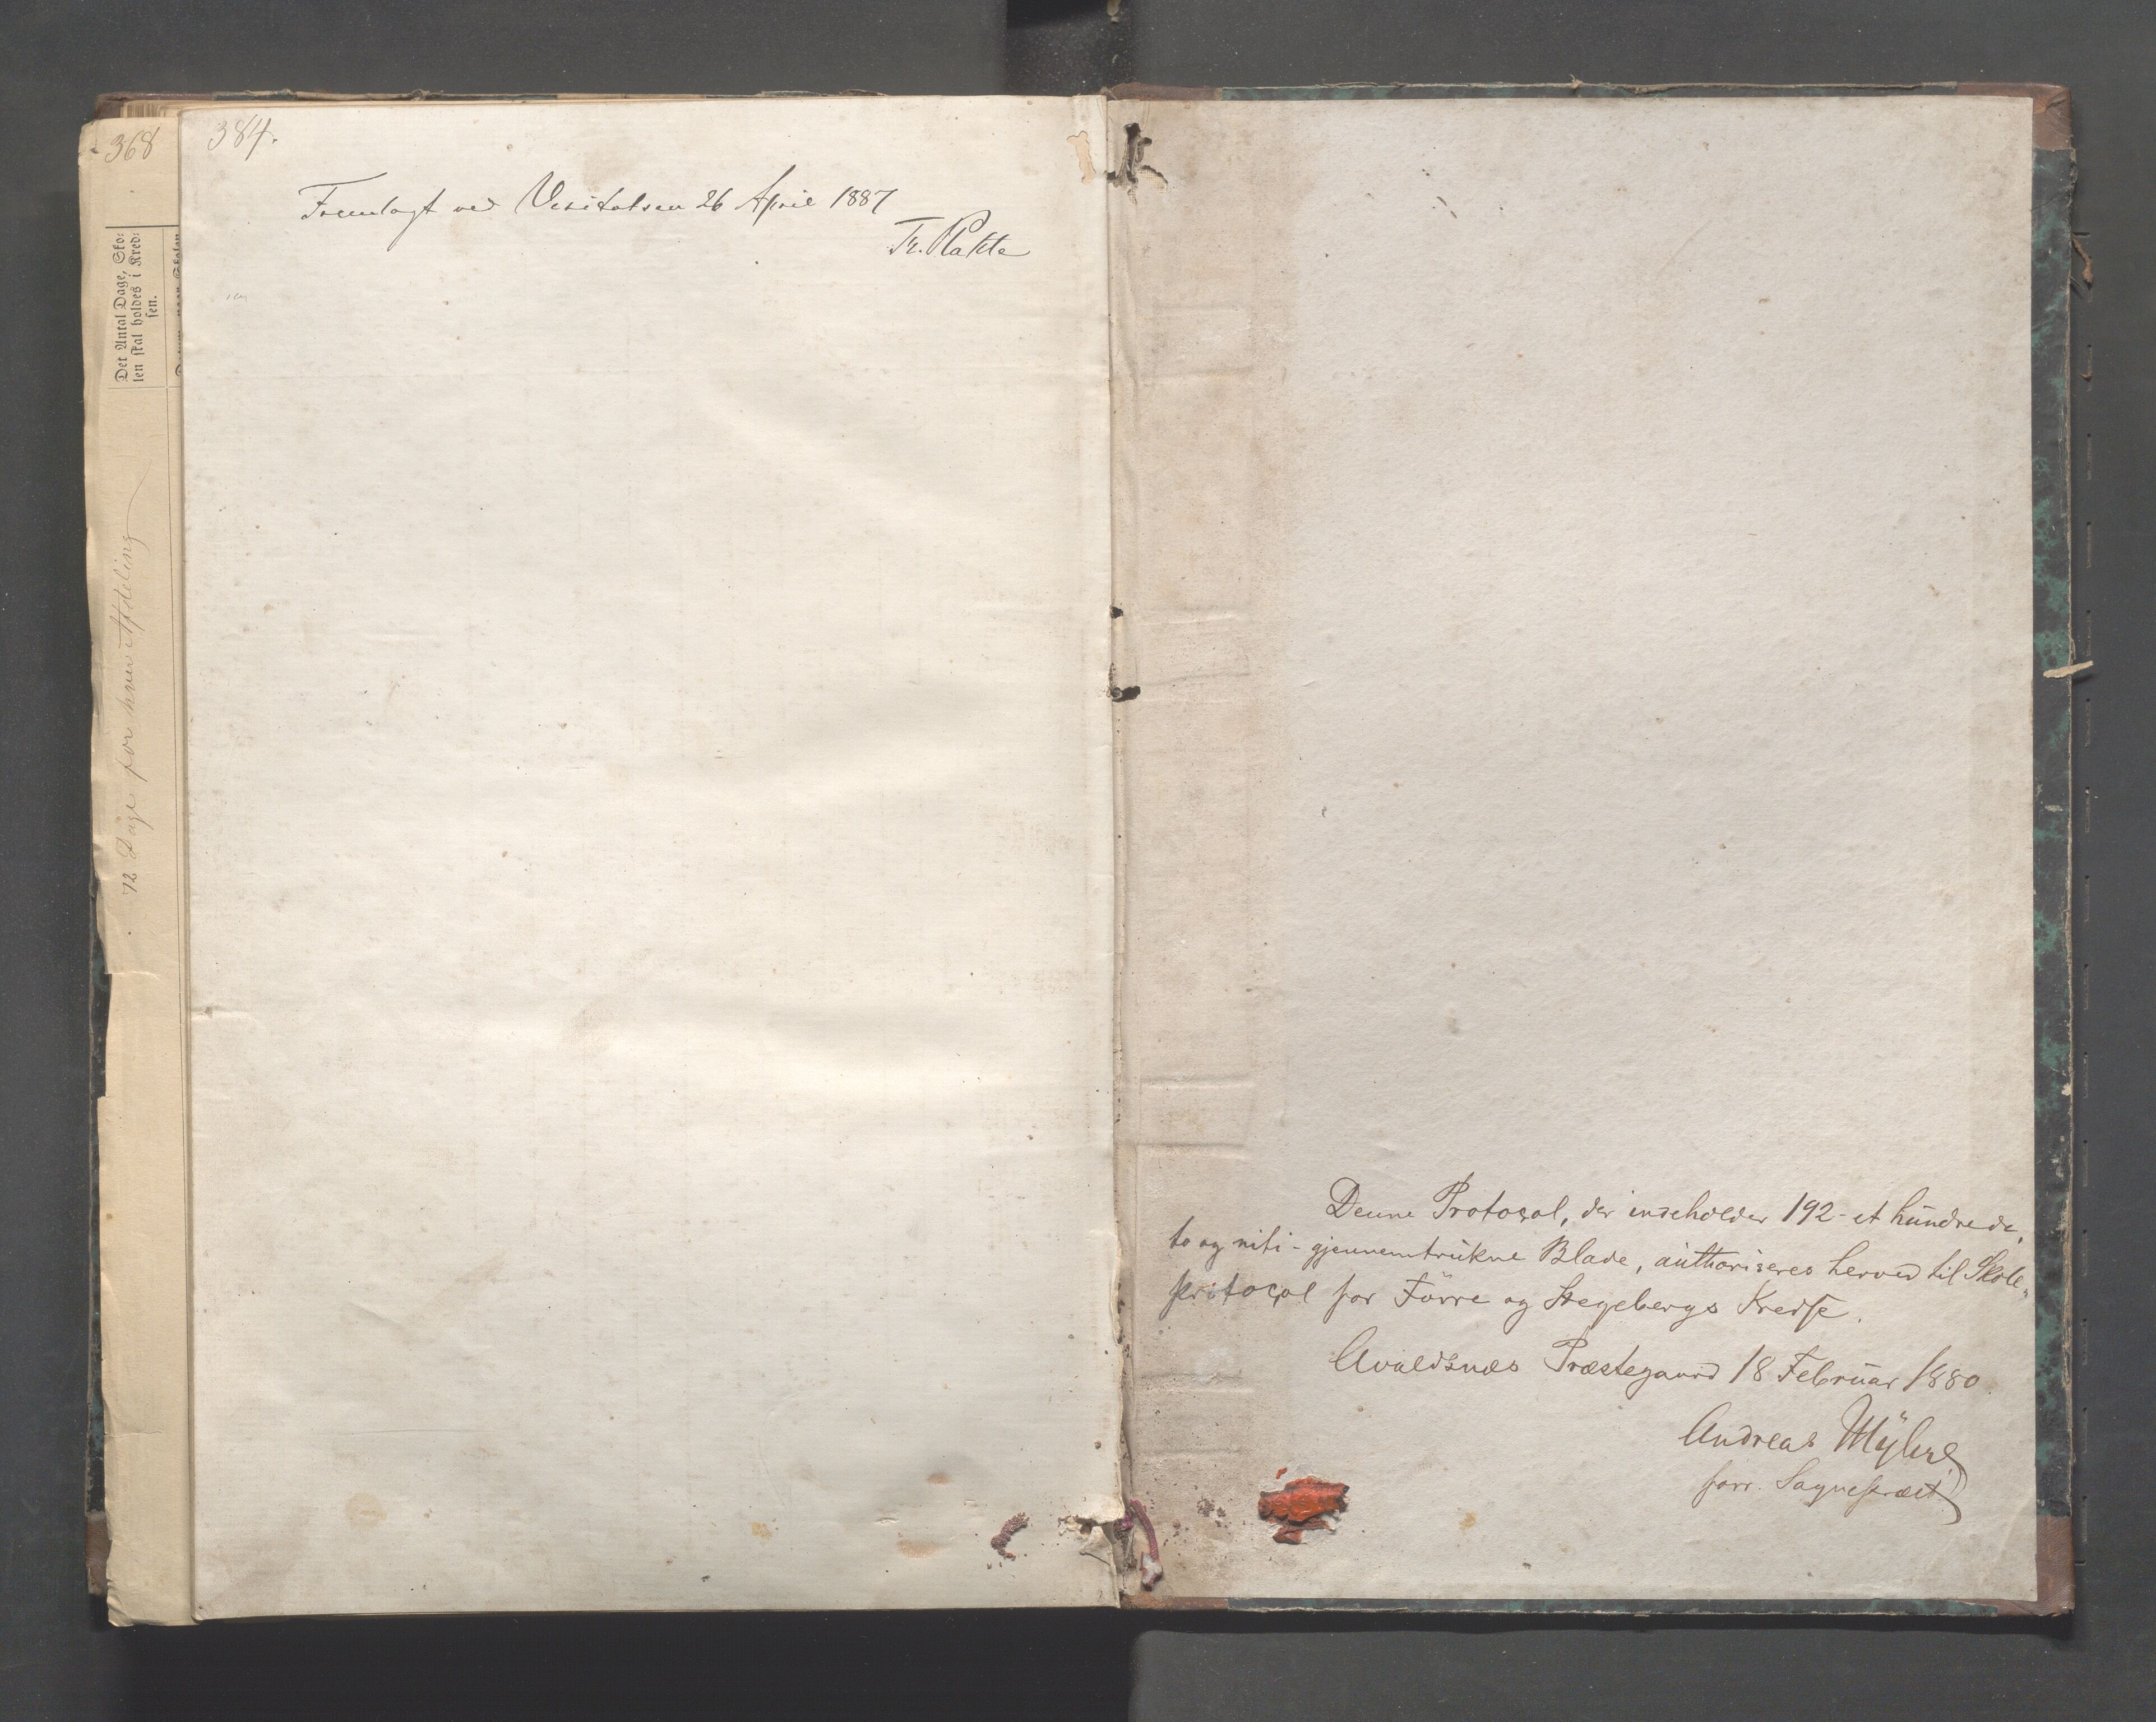 368
Det Antal Dage, Sko-
len skal holdes i Kred-
sen.
12 Dage for hver Afdeling
384.
Fremlagt ved Visitatsen 26 April 1887
Denne Protocol, der indeholder 192 - et hundrede,
to og niti - gjennemtrukne Blade, authoriseres herved til Skole-
protocol for Førre og Stegebergs Kredse.
Avaldsnes Præstegaard 18 Februar 1880.
Andreas
forr. Sognepræst.